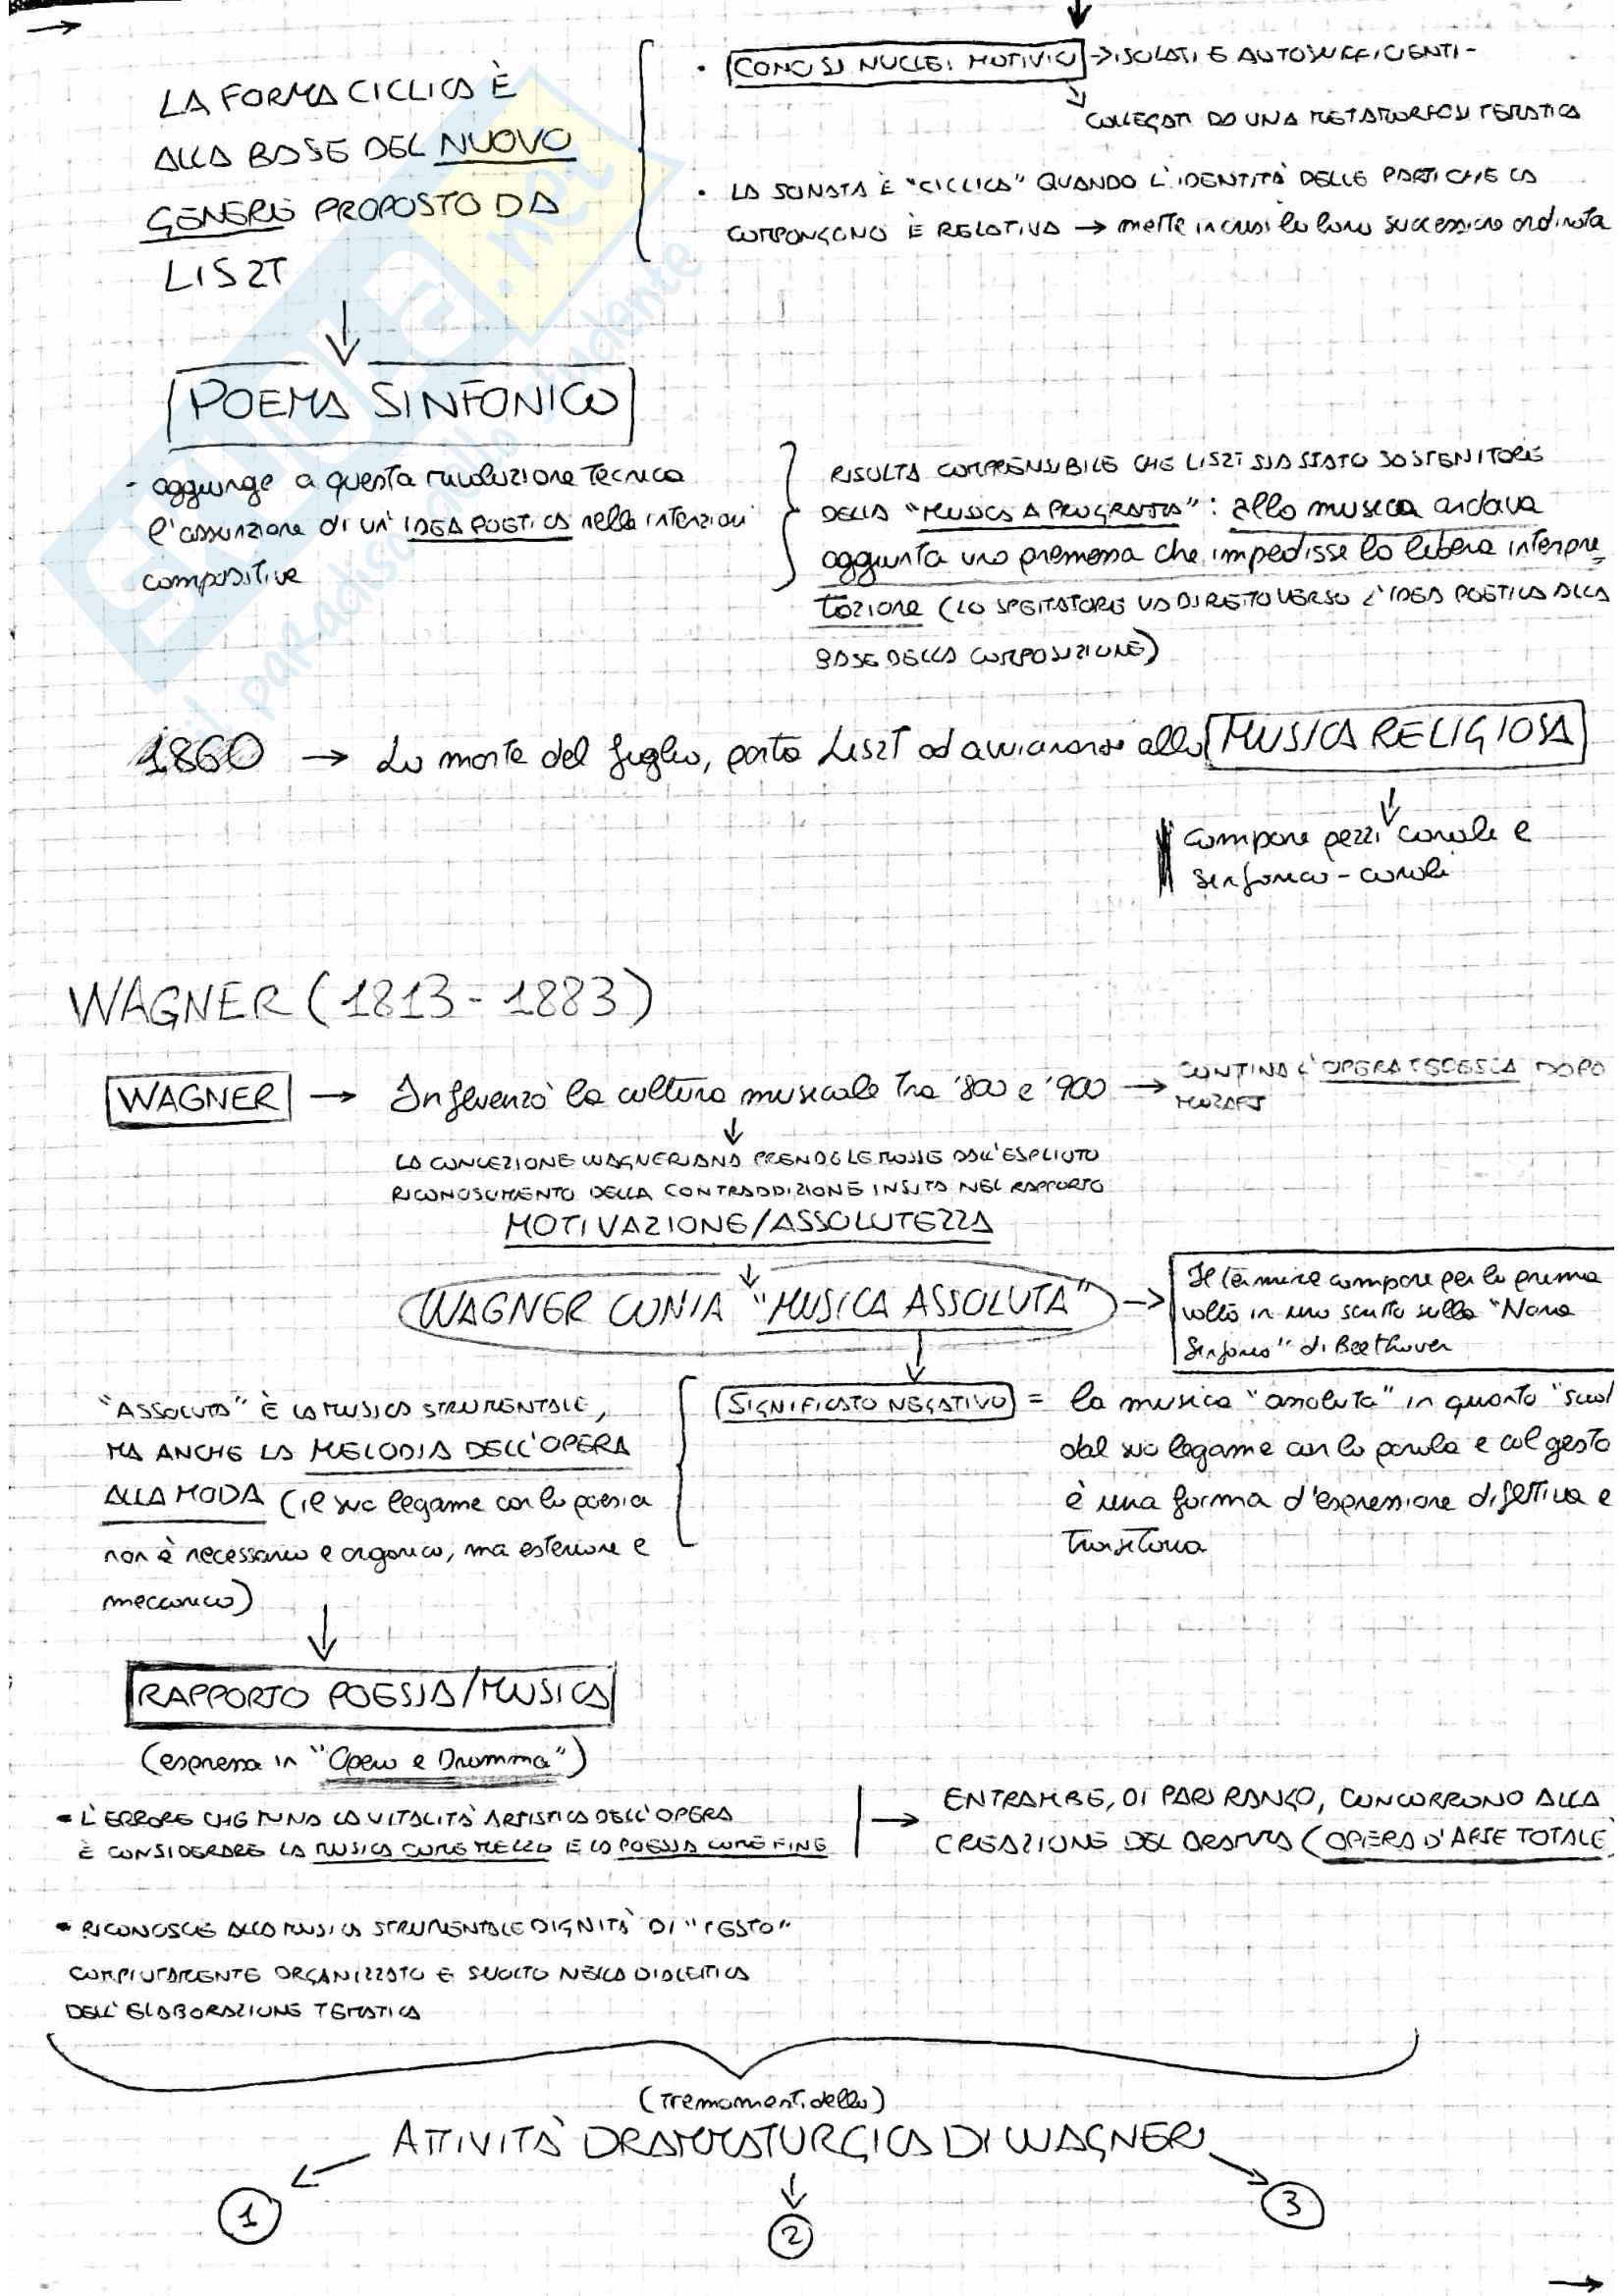 LA FORMA CICLICA È
ALLA BASE DEL NUOVO
GENERE PROPOSTO DA
LISZT
• CONCISI NUCLEI MOTIVICI → ISOLATI E AUTOSUFFICIENTI -
COLLEGATI DA UNA METAMORFOSI TEMATICA
• LA SONATA È "CICLICA" QUANDO L'IDENTITÀ DELLE PARTI CHE LA
COMPONGONO È RELATIVA → mette in crisi la loro successione ordinata
POEMA SINFONICO
- aggiunge a questa rivoluzione tecnica
l'assunzione di un' IDEA POETICA nelle intenzioni
compositive
RISULTA COMPRENSIBILE CHE LISZT SIA STATO SOSTENITORE
DELLA "MUSICA A PROGRAMMA": alla musica andava
aggiunta una premessa che impedisse la libera interpre-
tazione (LO SPETTATORE VA DIRETTO VERSO L'IDEA POETICA ALLA
BASE DELLA COMPOSIZIONE)
1860 → La morte del figlio, porta Liszt ad avvicinarsi alla MUSICA RELIGIOSA
Compone pezzi corali e
sinfonico-corali
WAGNER (1813 - 1883)
WAGNER → Influenzò la cultura musicale tra '800 e '900 → CONTINA L'OPERA TEDESCA DOPO
MOZART
LA CONCEZIONE WAGNERIANA PRENDE LE MOSSE DALL'ESPLICITO
RICONOSCIMENTO DELLA CONTRADDIZIONE INSITA NEL RAPPORTO
MOTIVAZIONE/ASSOLUTEZZA
WAGNER CONIA "MUSICA ASSOLUTA" →
Il termine compare per la prima
volta in uno scritto sulla "Nona
Sinfonia" di Beethoven
"ASSOLUTA" È LA MUSICA STRUMENTALE,
MA ANCHE LA MELODIA DELL'OPERA
ALLA MODA (il suo legame con la poesia
non è necessario e organico, ma esteriore e
meccanico)
SIGNIFICATO NEGATIVO = la musica "assoluta" in quanto "sciol
dal suo legame con la parola e col gesto
è una forma d'espressione difettiva e
transitoria
RAPPORTO POESIA/MUSICA
(espressa in "Opera e Dramma")
- L'ERRORE CHE MINA LA VITALITÀ ARTISTICA DELL'OPERA
È CONSIDERARE LA MUSICA COME MEZZO E LA POESIA COME FINE
→ ENTRAMBE, DI PARI RANGO, CONCORRONO ALLA
CREAZIONE DEL DRAMMA (OPERA D'ARTE TOTALE
- RICONOSCE ALLA MUSICA STRUMENTALE DIGNITÀ DI "TESTO"
COMPIUTAMENTE ORGANIZZATO E SVOLTO NELLA DIALETTICA
DELL'ELABORAZIONE TEMATICA
(tre momenti della)
ATTIVITÀ DRAMMATURGICA DI WAGNER
1
2
3
il paradiso dello studente